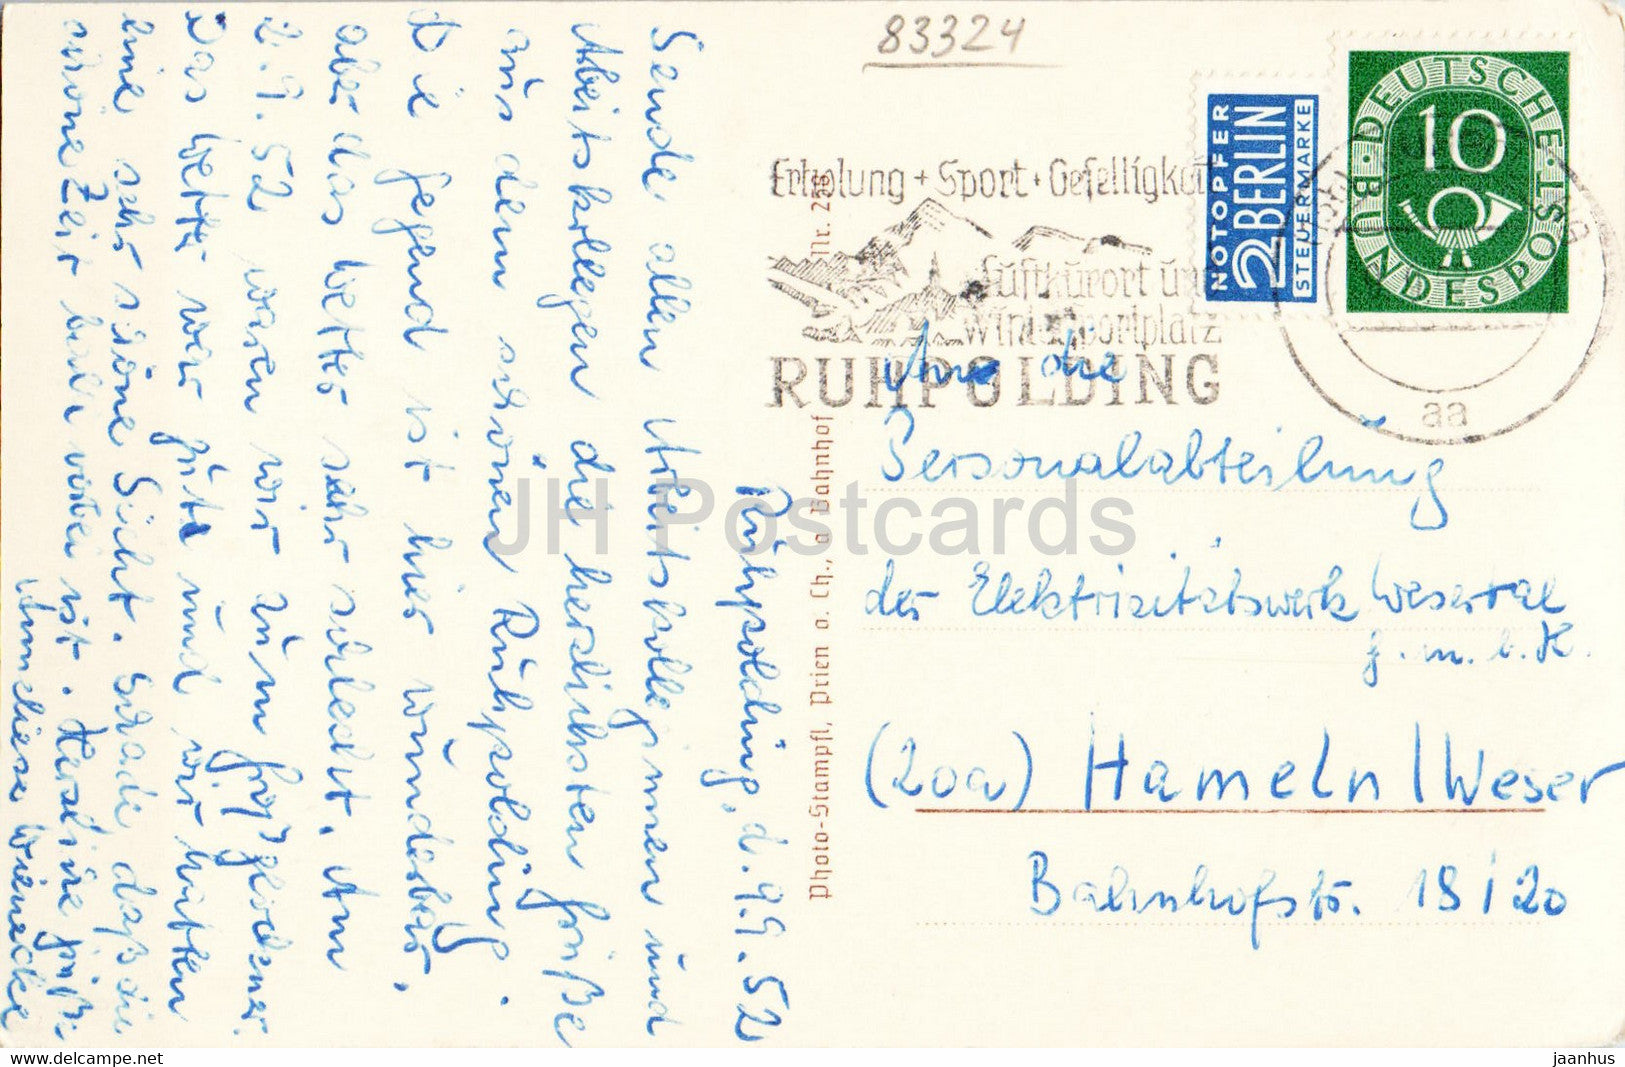 83324
Erholung + Sport + Geselligkeit
Luftkurort und
Wintersportplatz
RUHPOLDING
NOTOPFER
2 BERLIN
STEUERMARKE
DEUTSCHE BUNDESPOST
10
aa
Ruhpolding, d. 9.9.52
Sende allen Arbeitskolleginnen und
Arbeitskollegen die herzlichsten Grüße
aus dem schönen Ruhpolding.
Die Gegend ist hier wunderbar,
aber das Wetter sehr schlecht. Am
2.9.52 waren wir zum Großglockner.
Das Wetter war gut und wir hatten
eine sehr schöne Sicht. Schade, daß die
schöne Zeit bald vorbei ist. Herzliche Grüße
Anneliese Wienecke
Photo-Stampfl, Prien a. Ch., a Bahnhof
Nr. 238
An die
Personalabteilung
der Elektrizitätswerk Wesertal
G.m.b.H.
(20a) Hameln/Weser
Bahnhofstr. 18/20
JH Postcards
HipPostcard.com
jaanhus